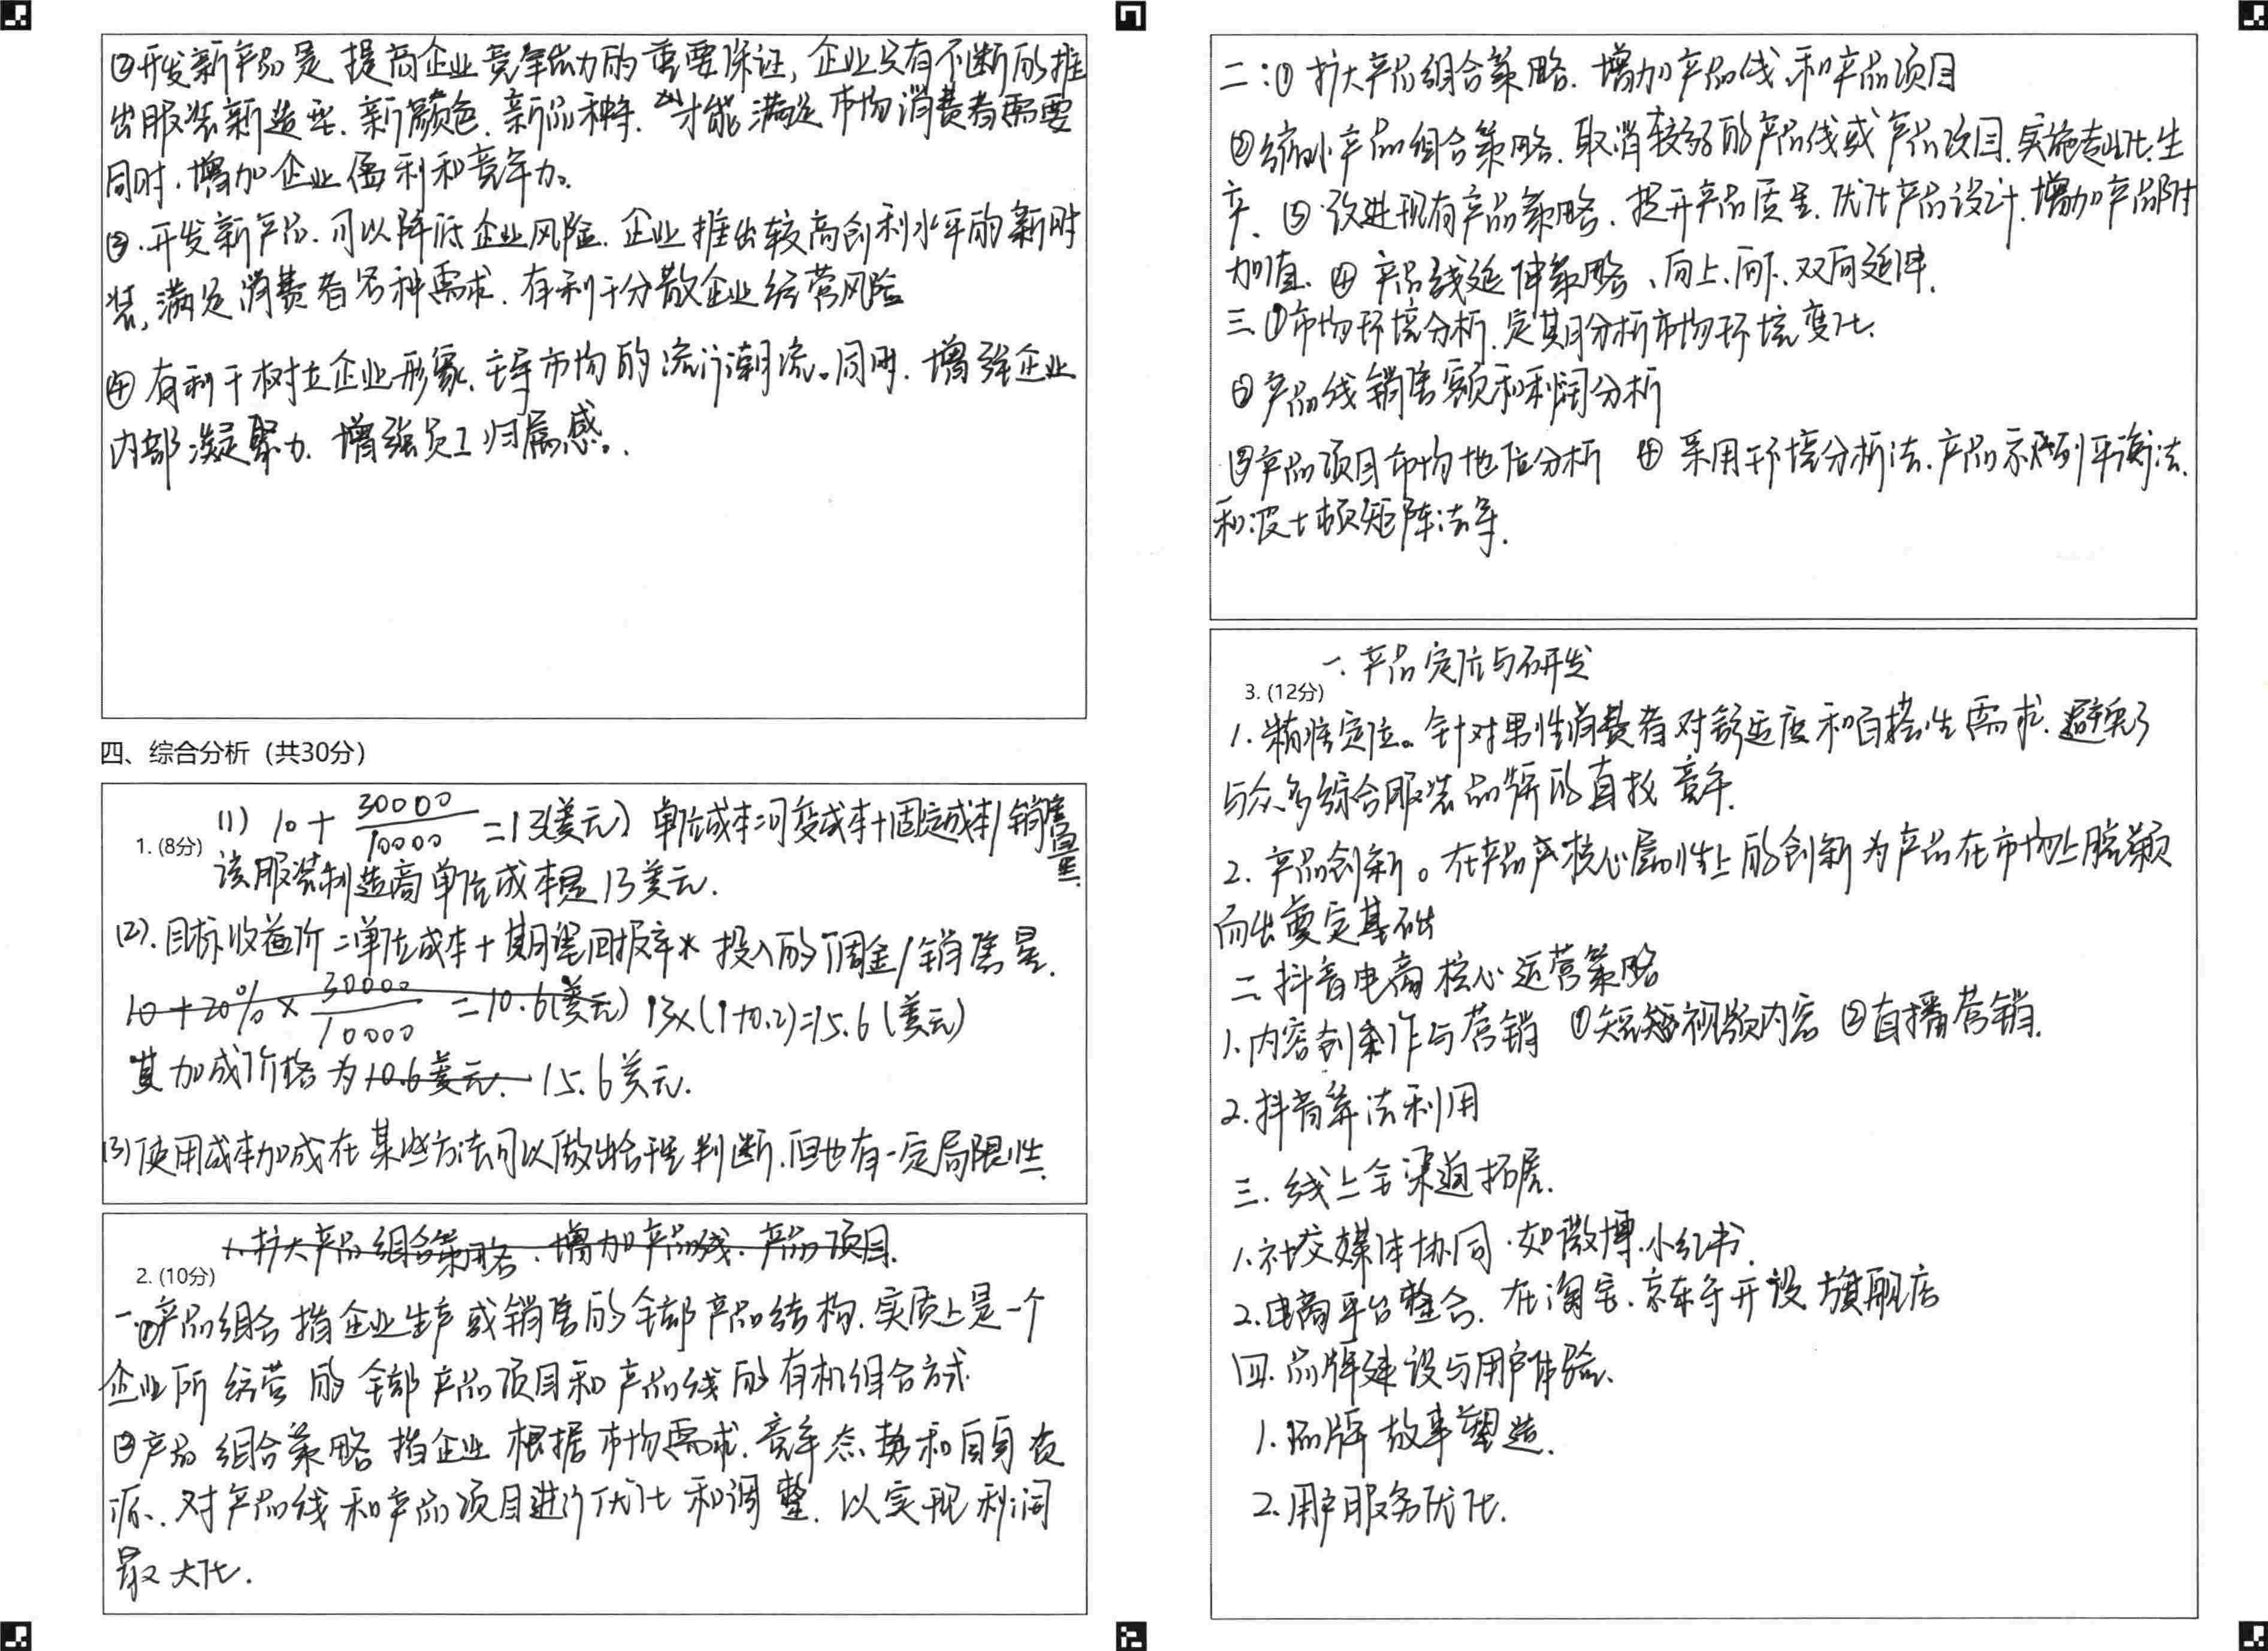 ②开发新产品是提高企业竞争能力的重要保证,企业只有不断的推
出服装新造型、新颜色、新品种,才能满足市场消费者需要
同时,增加企业盈利和竞争力。
③.开发新产品.可以降低企业风险.企业推出较高创利水平的新时
装,满足消费者各种需求.有利于分散企业经营风险
④有利于树立企业形象.主导市场的流行潮流。同时.增强企业
内部凝聚力.增强员工归属感。
四、综合分析(共30分)
1. (8分)
(1) 10+30000/10000=13(美元) 单位成本=可变成本+固定成本/销售量.
该服装制造商单位成本是13美元.
(2).目标收益价=单位成本+期望回报率*投入的资金/销售量.
10+20%×30000/10000=10.6(美元) 13×(1+0.2)=15.6(美元)
其加成价格为10.6美元. 15.6美元.
(3)使用成本加成在某些方法可以做出合理判断.但也有一定局限性.
1.扩大产品组合策略.增加产品线.产品项目.
2. (10分)
一.①产品组合指企业生产或销售的全部产品结构.实质上是一个
企业所经营的全部产品项目和产品线的有机组合方式
②产品组合策略指企业根据市场需求.竞争态势和自身资
源.对产品线和产品项目进行优化和调整.以实现利润
最大化.
二:①扩大产品组合策略.增加产品线和产品项目
②缩小产品组合策略.取消较弱的产品线或产品项目.实施专业化生
产.③改进现有产品策略.提升产品质量.优化产品设计.增加产品附
加值.④产品线延伸策略、向上、向下、双向延伸.
三.①市场环境分析.定期分析市场环境变化.
②产品线销售额和利润分析
③产品项目市场地位分析 ④采用环境分析法.产品系列平衡法.
和波士顿矩阵法等.
一.产品定位与研发
3. (12分)
1.精准定位。针对男性消费者对舒适度和百搭性需求.避免了
与众多综合服装品牌的直接竞争.
2.产品创新。在产品核心属性上的创新为产品在市场上脱颖
而出奠定基础
二.抖音电商核心运营策略
1.内容创作与营销 ①短视频内容 ②直播营销.
2.抖音算法利用
三.线上全渠道拓展.
1.社交媒体协同.如微博.小红书.
2.电商平台整合.在淘宝.京东等开设旗舰店
四.品牌建设与用户体验.
1.品牌故事塑造.
2.用户服务优化.